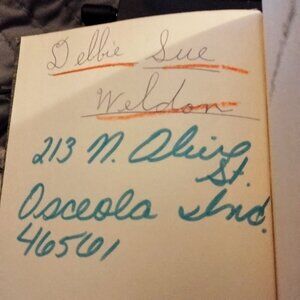 Debbie Sue
Weldon
213 N. Olive
St.
Osceola Ind.
46561